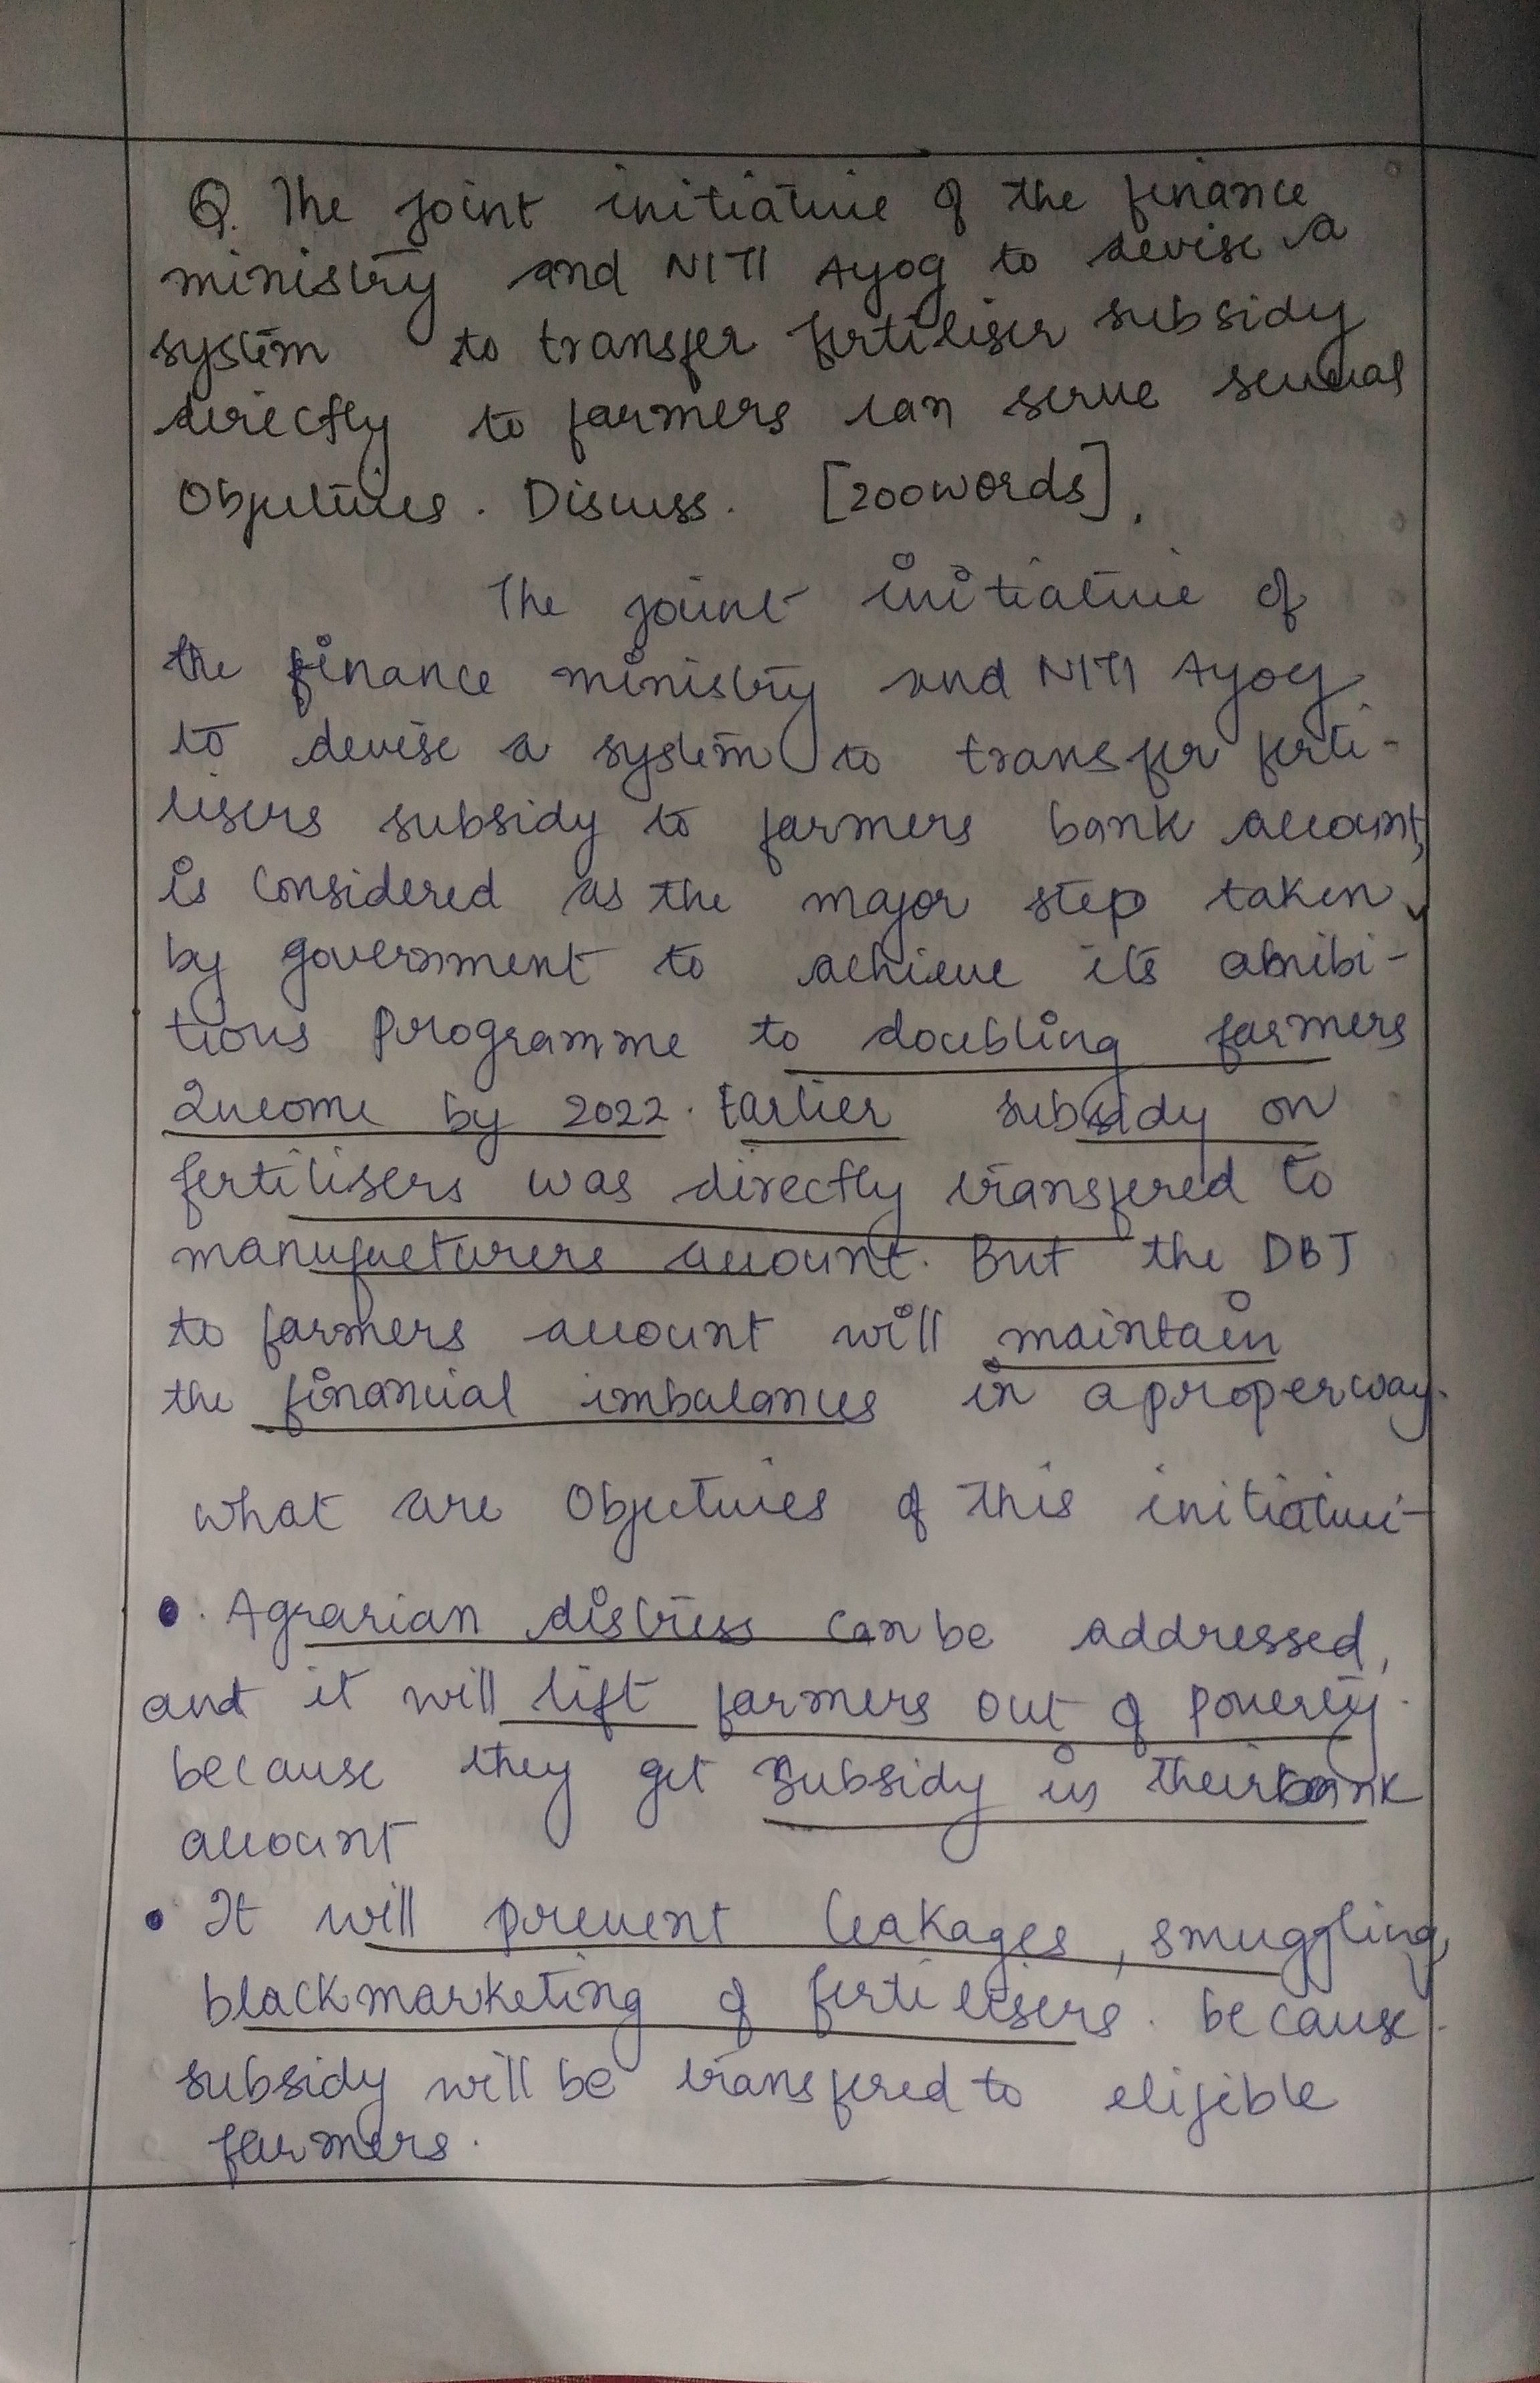 Q. The joint initiative of the finance
ministry and NITI Ayog to devise a
system to transfer fertiliser subsidy
directly to farmers can serve several
Objectives. Discuss. [200words].
The joint initiative of
the finance ministry and NITI Ayog
to devise a system to transfer ferti-
lisers subsidy to farmers bank account,
is considered as the major step taken
by government to achieve its ambi-
tious programme to doubling farmers
Income by 2022. Earlier subsidy on
fertilisers was directly transfered to
manufacturers account. But the DBT
to farmers account will maintain
the financial imbalances in a proper way.
What are Objectives of this initiative-
• Agrarian distress can be addressed,
and it will lift farmers out of poverty.
because they get subsidy in their bank
account
• It will prevent leakages, smuggling,
blackmarketing of fertilisers. because
subsidy will be transfered to elijible
farmers.